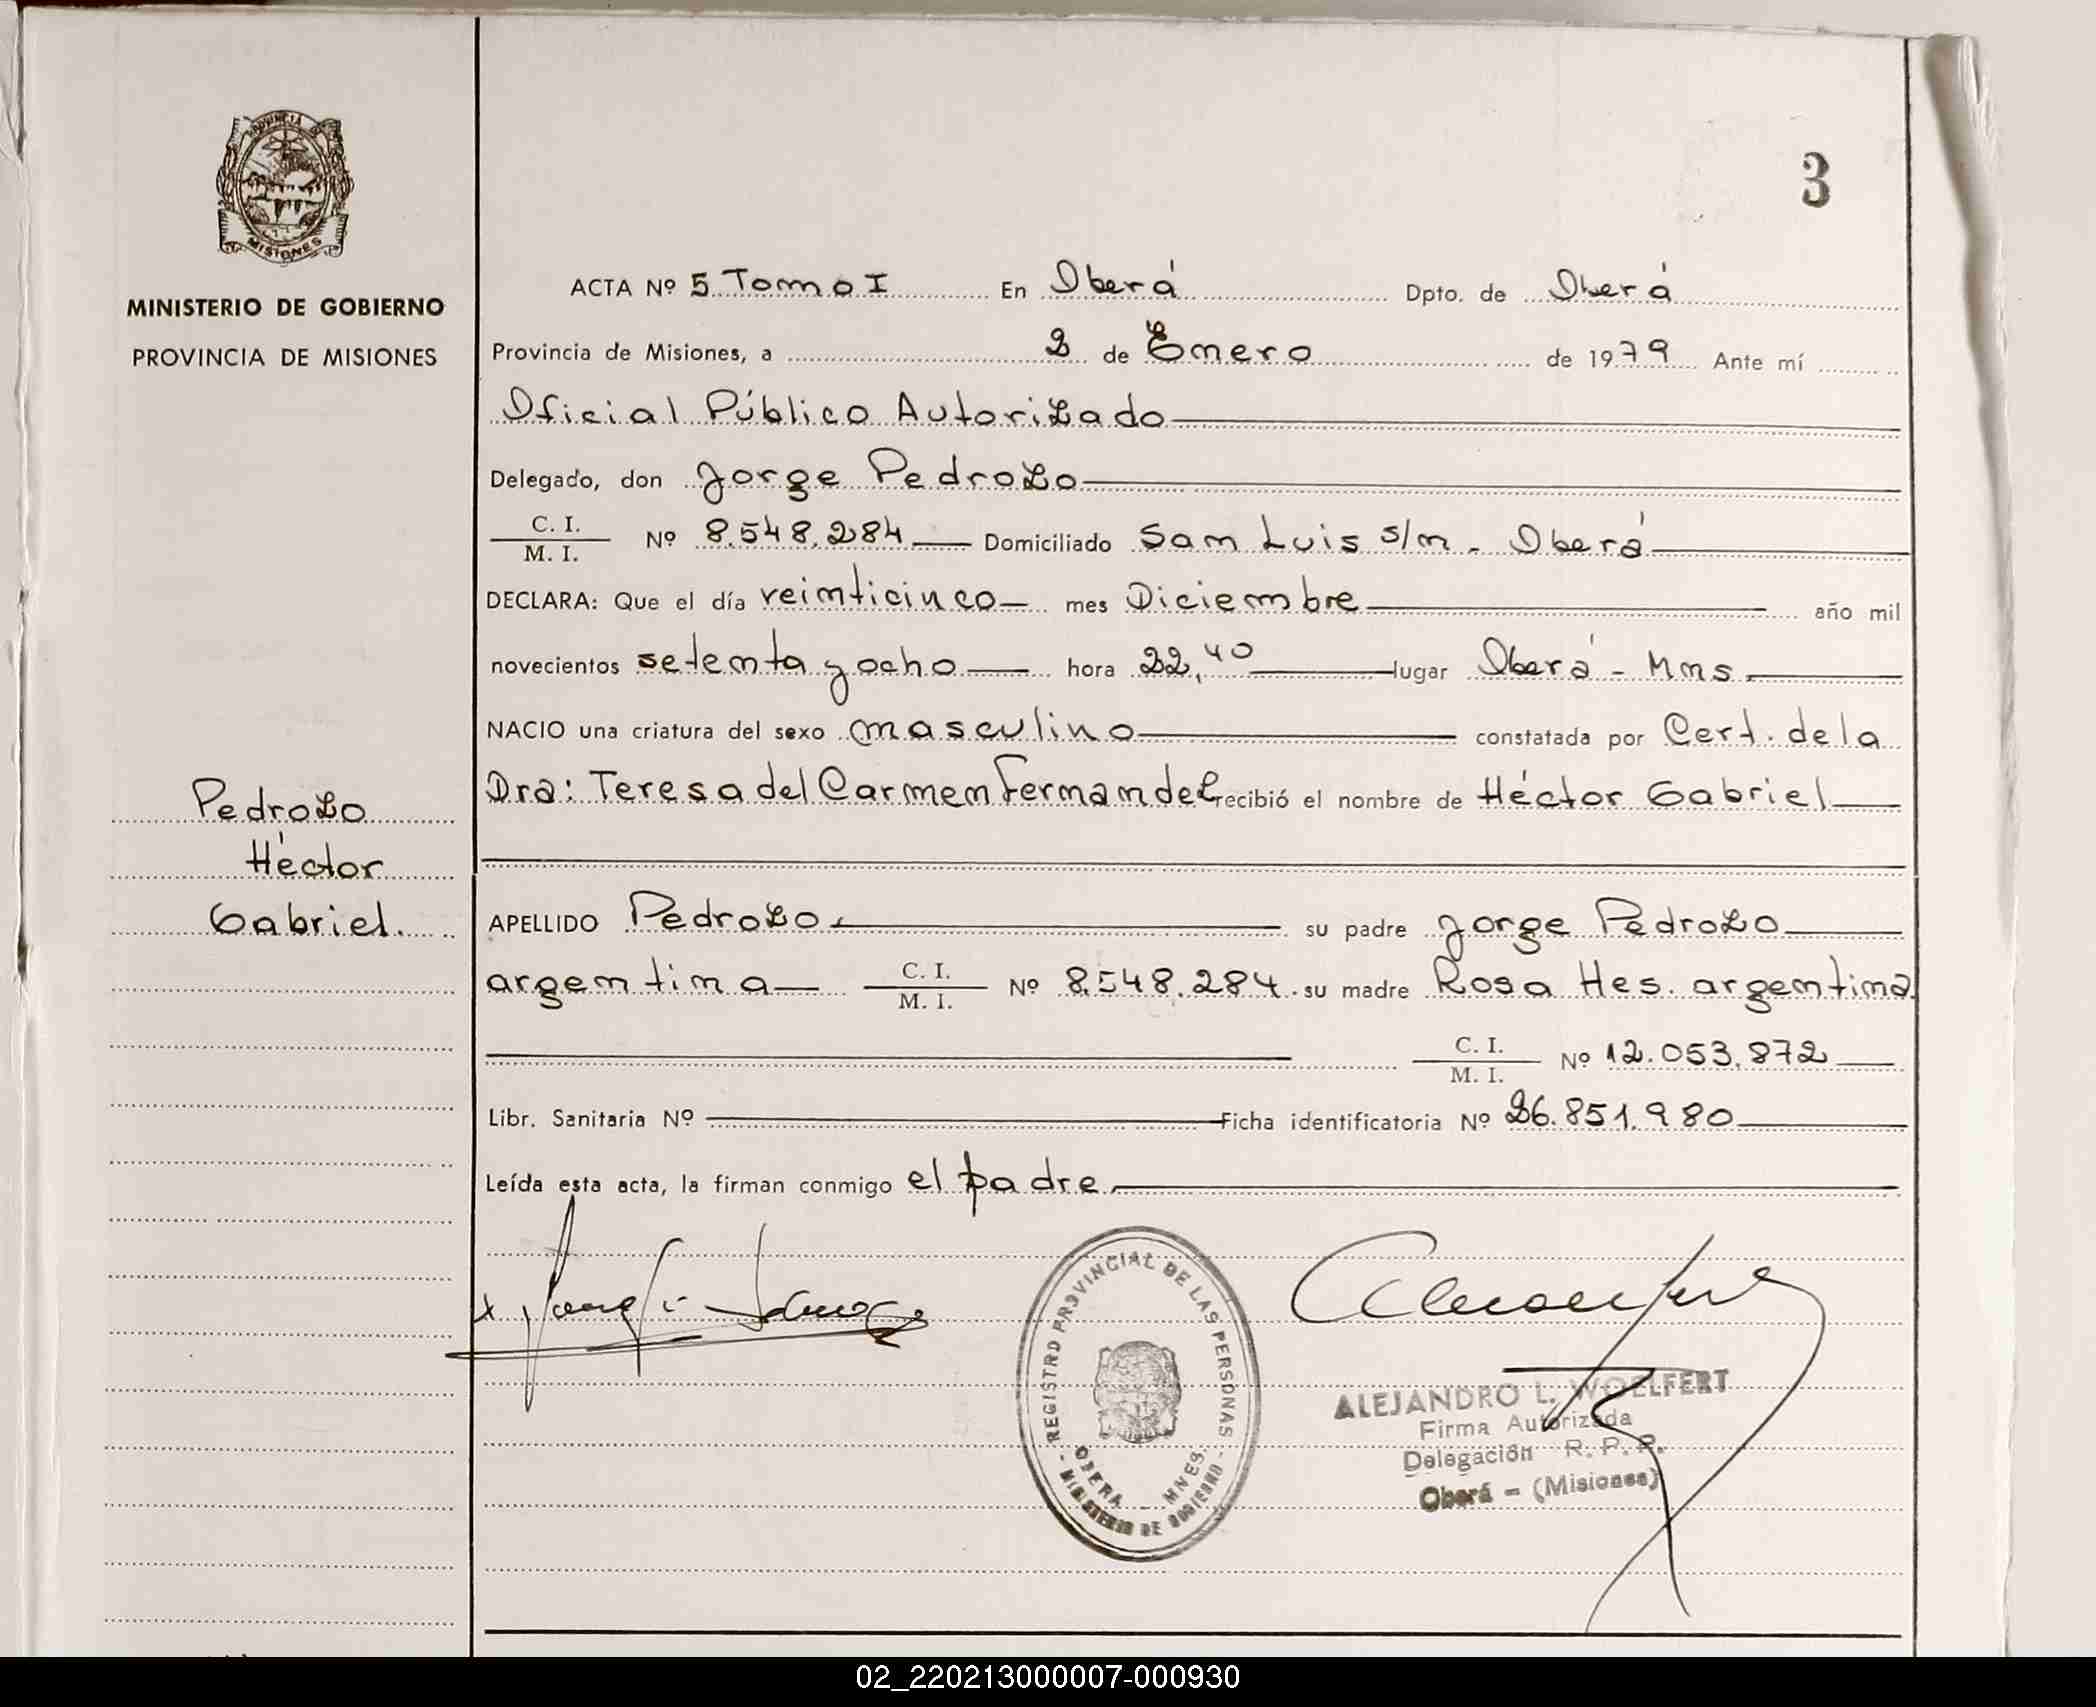 3
PROVINCIA DE
MISIONES
MINISTERIO DE GOBIERNO
PROVINCIA DE MISIONES
ACTA Nº 5 Tomo I En Oberá Dpto. de Oberá
Provincia de Misiones, a 2 de Enero de 1979 Ante mí
Oficial Público Autorizado
Delegado, don Jorge Pedrozo
C. I.
M. I. Nº 8.548.284 Domiciliado San Luis s/n - Oberá
DECLARA: Que el día veinticinco mes Diciembre año mil
novecientos setenta y ocho hora 22,40 lugar Oberá - Mns
NACIO una criatura del sexo masculino constatada por Cert. de la
Dra: Teresa del Carmen Fernandez recibió el nombre de Héctor Gabriel
Pedrozo
Héctor
Gabriel.
APELLIDO Pedrozo su padre Jorge Pedrozo
argentina C. I.
M. I. Nº 8.548.284 su madre Rosa Hes. argentina
C. I.
M. I. Nº 12.053.872
Libr. Sanitaria Nº Ficha identificatoria Nº 26.851.980
Leída esta acta, la firman conmigo el padre
REGISTRO PROVINCIAL DE LAS PERSONAS
OBERA - MNES.
- MINISTERIO DE GOBIERNO -
ALEJANDRO L. WOELFERT
Firma Autorizada
Delegación R. P. P.
Oberá - (Misiones)
02_220213000007-000930